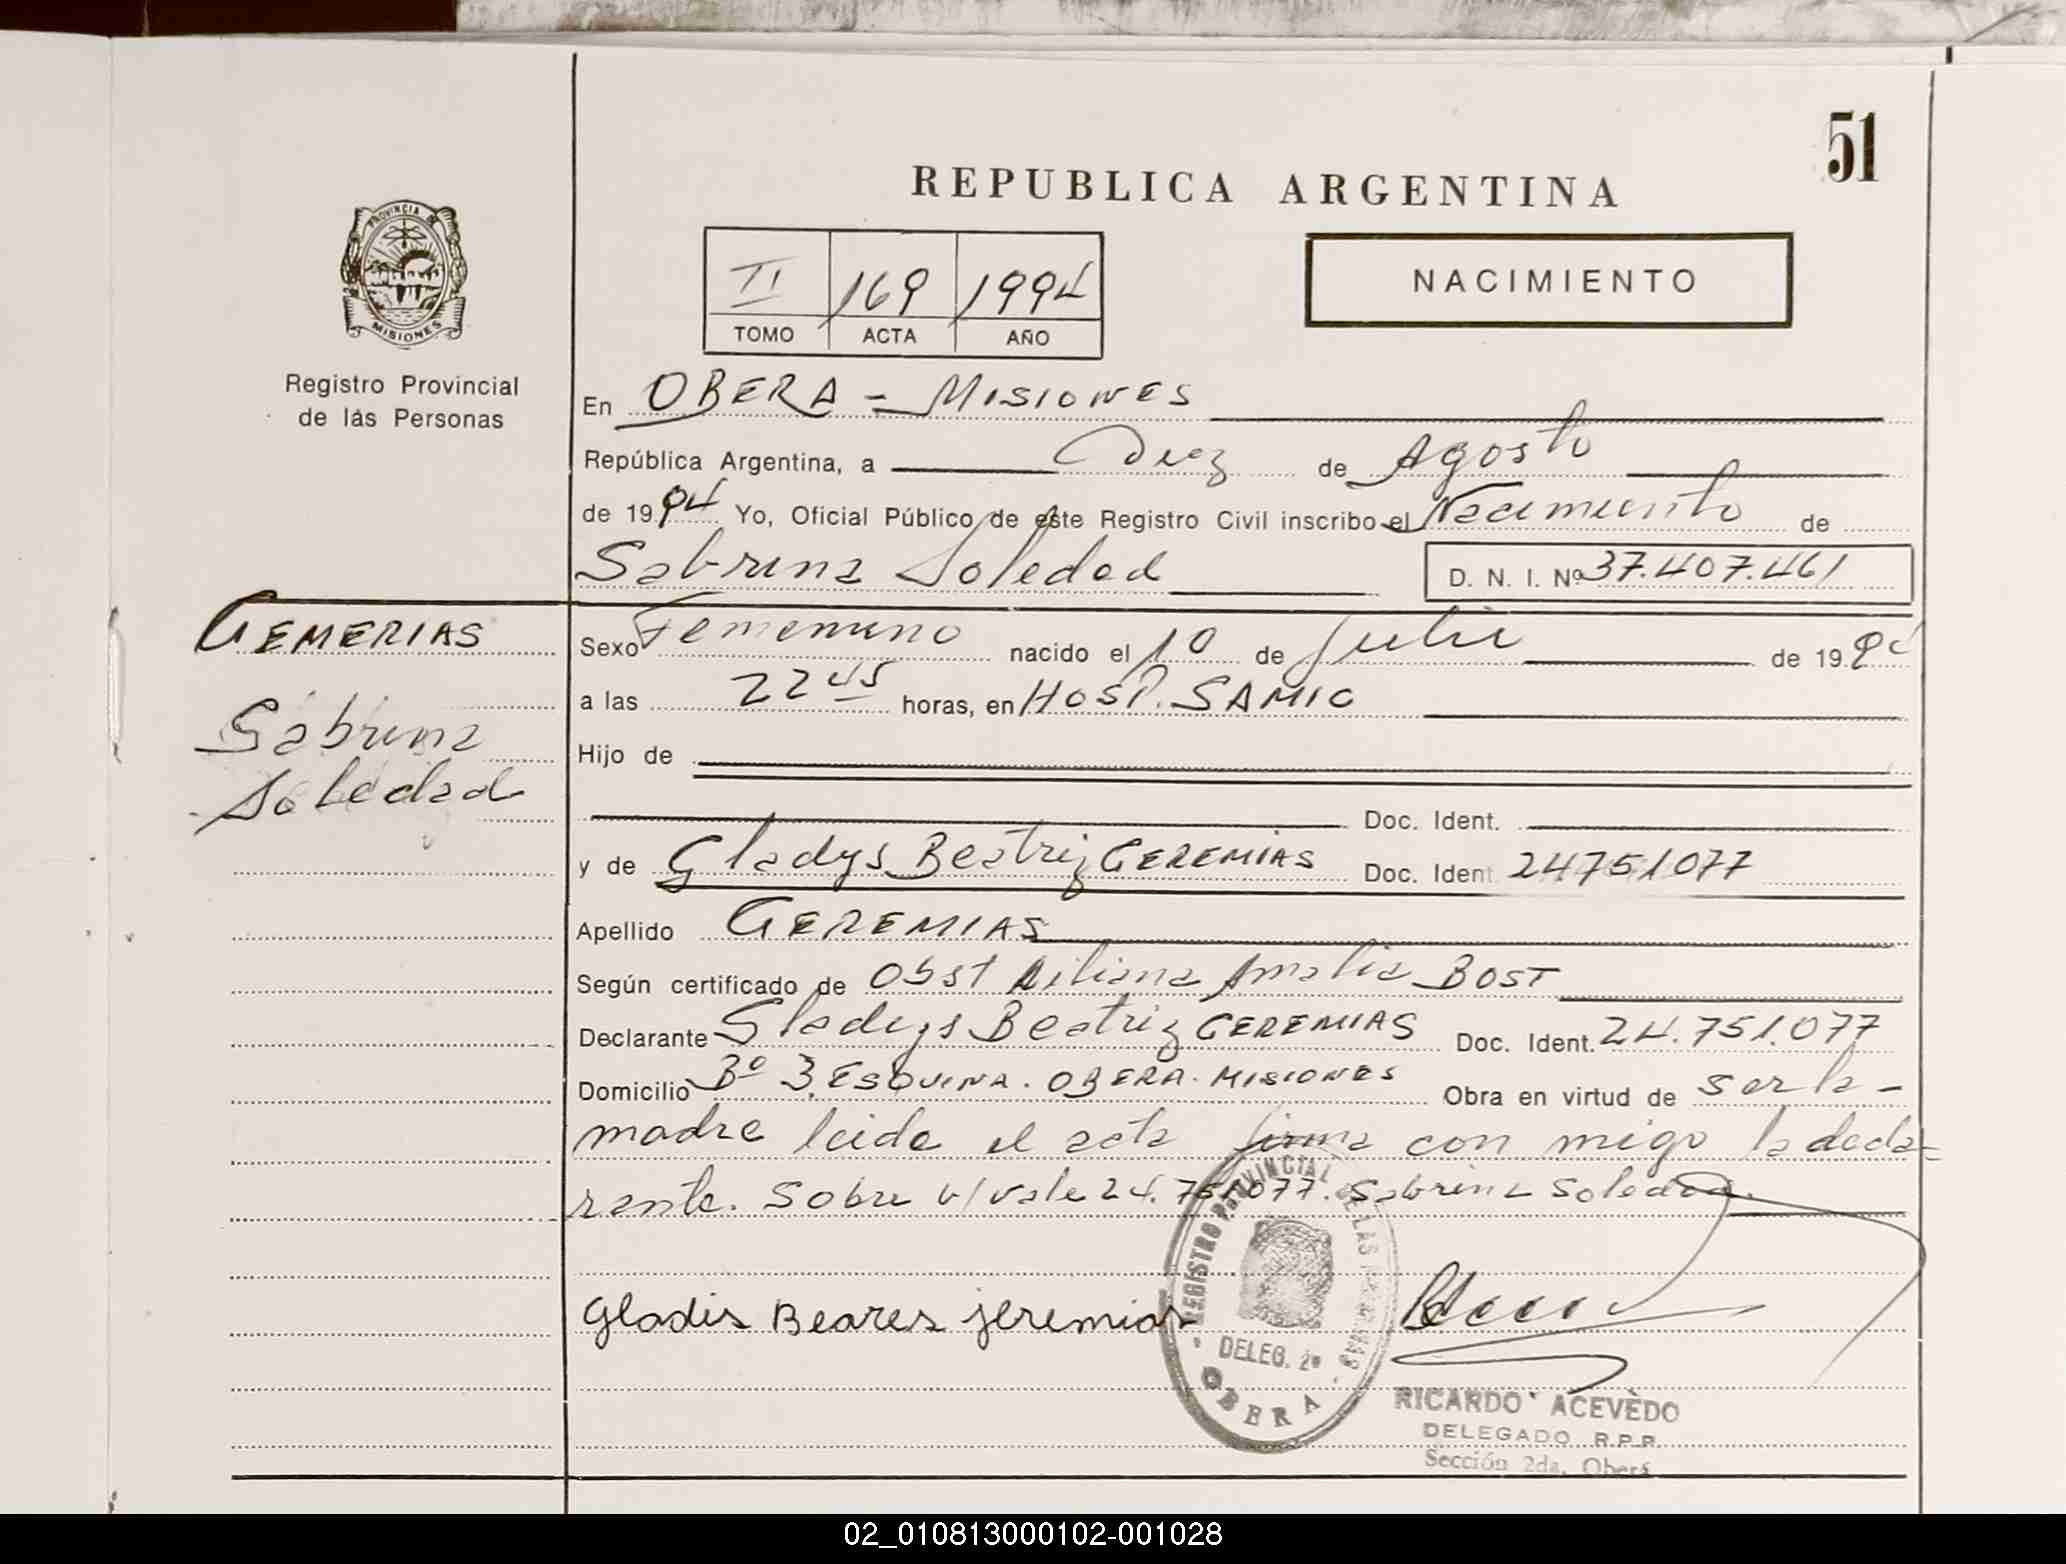 51
REPUBLICA ARGENTINA
PROVINCIA DE
MISIONES
Registro Provincial
de las Personas
II 169 1994
TOMO ACTA AÑO
NACIMIENTO
En OBERA - MISIONES
República Argentina, a Diez de Agosto
de 1994 Yo, Oficial Público de este Registro Civil inscribo el Nacimiento de
Sabrina Soledad D. N. I. Nº 37.407.461
GEMERIAS
Sabrina
Soledad
Sexo Femenino nacido el 10 de Julio de 199
a las 22 45 horas, en HOSP. SAMIC
Hijo de
Doc. Ident.
y de Gladys Beatriz GEREMIAS Doc. Ident 24751077
Apellido GEREMIAS
Según certificado de Obst Liliana Amalia BOST
Declarante Gladys Beatriz GEREMIAS Doc. Ident. 24.751.077
Domicilio Bº 3 ESQUINA. OBERA. MISIONES Obra en virtud de ser la -
madre leida el acta firma con migo la decla-
rante. Sobre b/ vale 24.751.077. Sabrina Soledad.
Gladis Beares jeremias
REGISTRO PROVINCIAL DE LAS PERSONAS
DELEG. 2º
OBERA
RICARDO ACEVEDO
DELEGADO R.P.P.
Sección 2da. Oberá
02_010813000102-001028